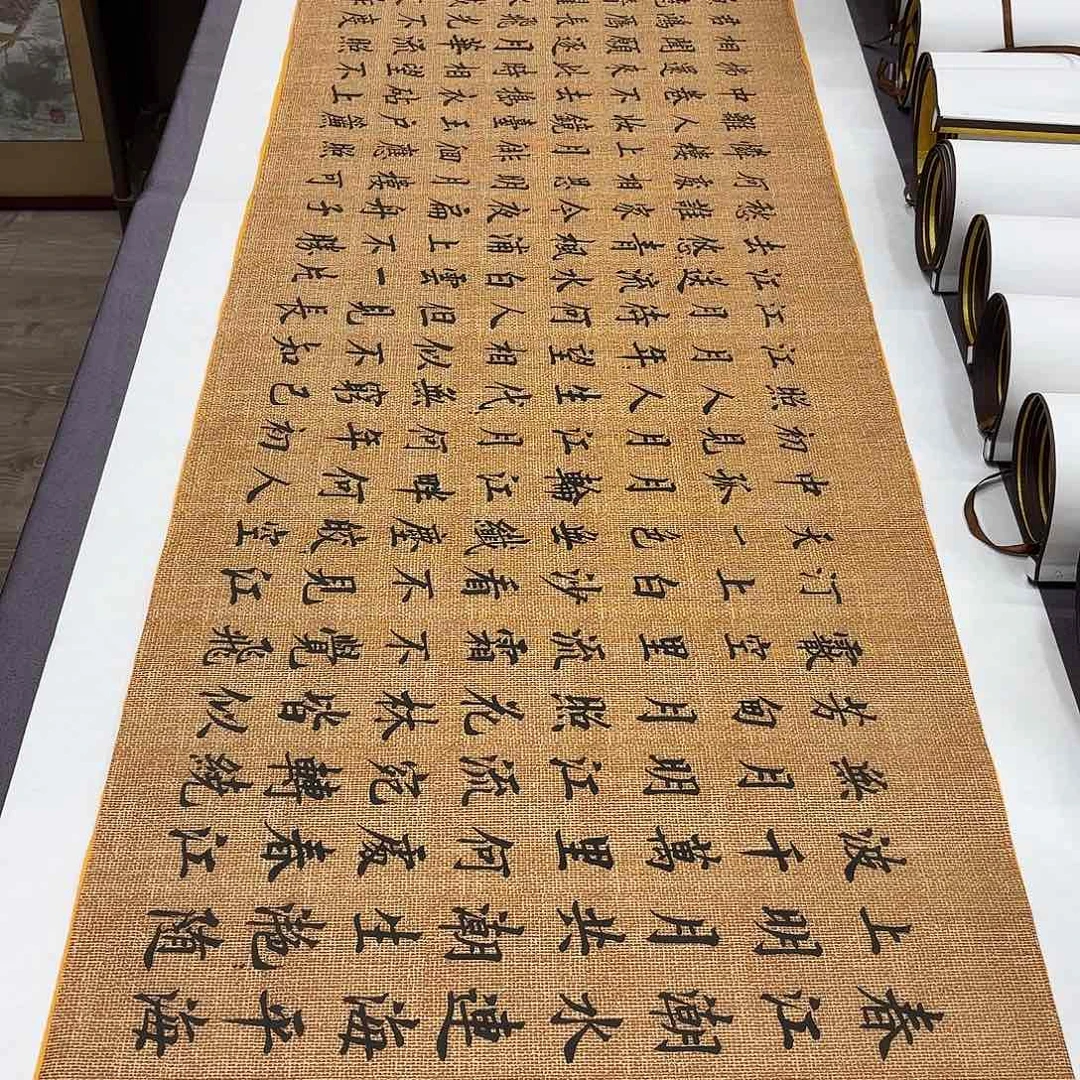 春江潮水連海平海
上明月共潮生灩隨
波千萬里何處春江
無月明江流宛轉繞
芳甸月照花林皆似
霰空里流霜不覺飛
汀上白沙看不見江
天一色無纖塵皎空
中孤月輪江畔何人
初見月江月何年初
照人人生代無窮已
江月年望相似不知
江月待何人但見長
江送流水白雲一片
去悠青楓浦上不勝
愁誰家今夜扁舟子
何處相思明月樓可
憐樓上月徘徊應照
離人妝鏡臺玉戶簾
中卷不去搗衣砧上
拂還來此時相望不
相聞願逐月華流照
君鴻長飛光不度